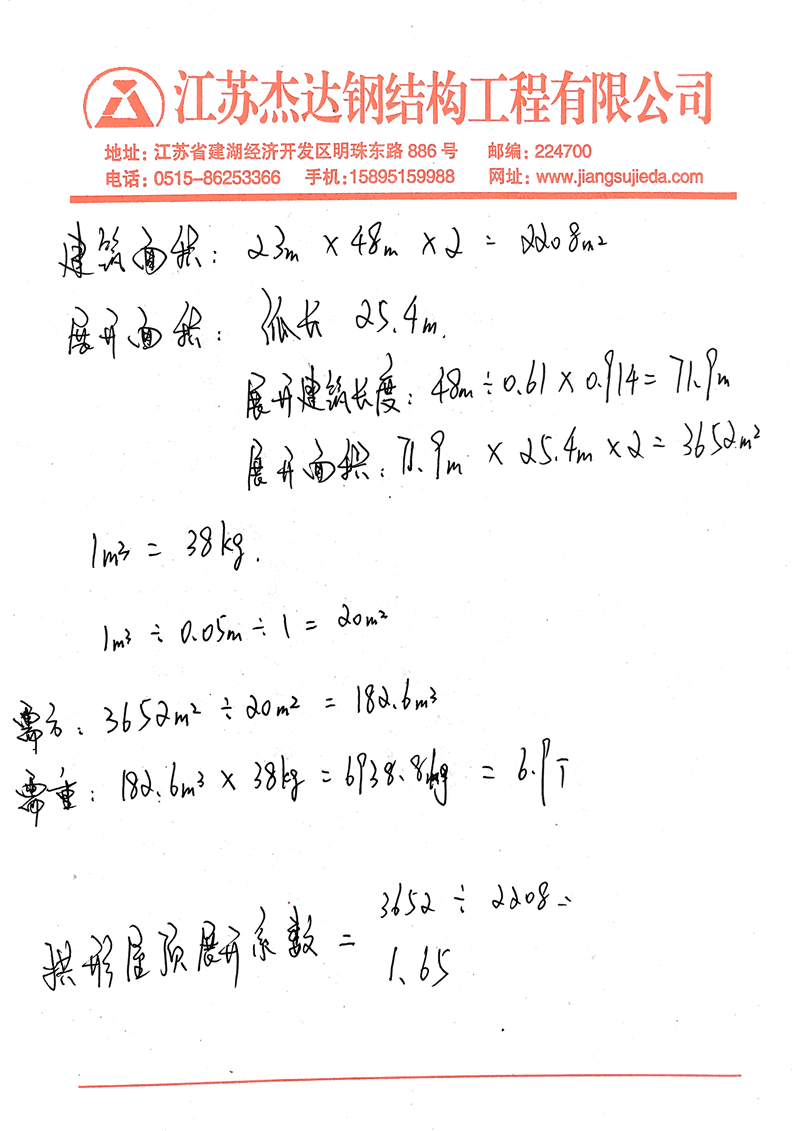 江苏杰达钢结构工程有限公司
地址：江苏省建湖经济开发区明珠东路 886 号 邮编：224700
电话：0515-86253366 手机：15895159988 网址：www.jiangsujieda.com
建筑面积：23m × 48m × 2 = 2208m²
展开面积：弧长 25.4m.
展开建筑长度：48m ÷ 0.61 × 0.914 = 71.9m
展开面积：71.9m × 25.4m × 2 = 3652m²
1m³ = 38kg.
1m³ ÷ 0.05m ÷ 1 = 20m²
需方：3652m² ÷ 20m² = 182.6m³
需重：182.6m³ × 38kg = 6938.8kg = 6.9T
3652 ÷ 2208 =
拱形屋顶展开系数 =
1.65